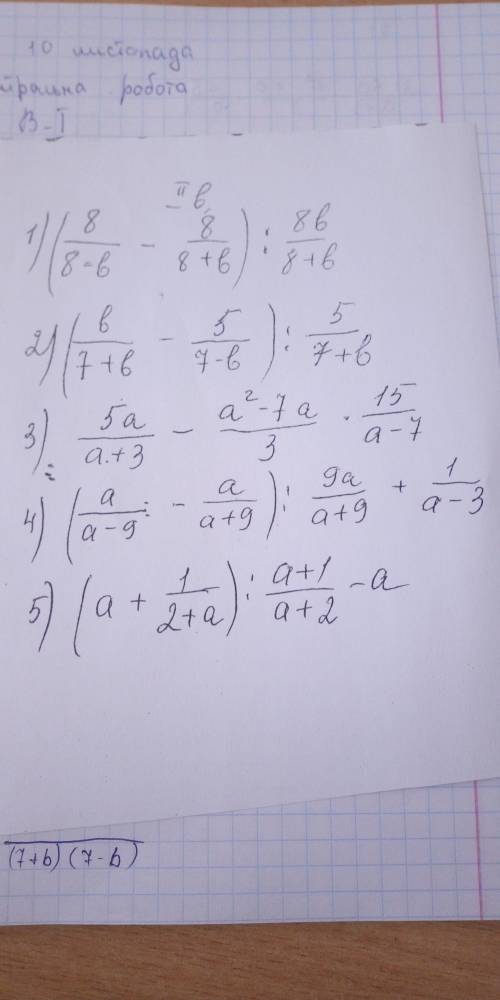 10 листопада
робота
В-I
II в
1) (8/(8-в) - 8/(8+в)) : 8в/(8+в)
2) (в/(7+в) - 5/(7-в)) : 5/(7+в)
3) 5a/(a+3) - (a²-7a)/3 · 15/(a-7)
4) (a/(a-9) - a/(a+9)) : 9a/(a+9) + 1/(a-3)
5) (a + 1/(2+a)) : (a+1)/(a+2) - a
(7+b)(7-b)